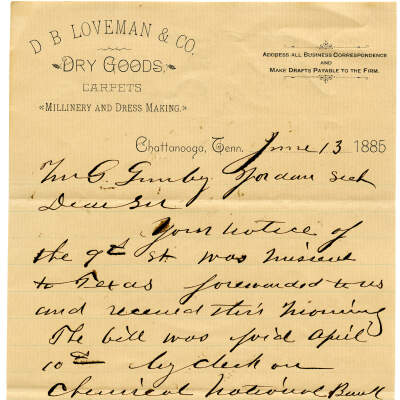 D B LOVEMAN & CO.
DRY GOODS,
CARPETS
MILLINERY AND DRESS MAKING.
ADDRESS ALL BUSINESS CORRESPONDENCE
AND
MAKE DRAFTS PAYABLE TO THE FIRM.
Chattanooga, Tenn. June 13 1885
Gumby
Dear Sir
Your notice of
the 9th was missent
to Texas forwarded to us
and received this morning
The bill was paid April
10th by check on
Chemical National Bank